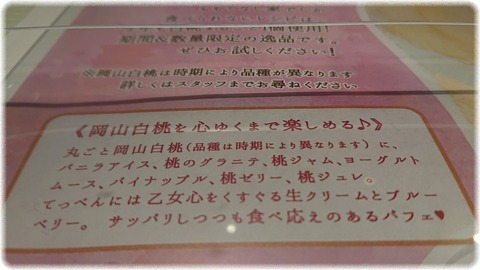 個使用!
期間&数量限定の逸品です。
ぜひお試しください!
※岡山白桃は時期により品種が異なります
詳しくはスタッフまでお尋ねください
《岡山白桃を心ゆくまで楽しめる♪》
丸ごと岡山白桃(品種は時期により異なります)に、
バニラアイス、桃のグラニテ、桃ジャム、ヨーグルト
ムース、パイナップル、桃ゼリー、桃ジュレ。
てっぺんには乙女心をくすぐる生クリームとブルー
ベリー。 サッパリしつつも食べ応えのあるパフェ♥